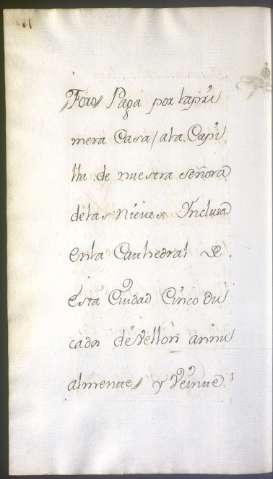 Foro Paga por la pri
mera Casa / a la Capi
lla de nuestra señora
de las Nieves Inclusa
en la Cathedral de
Esta Ciudad Cinco Du
cados de Vellon annu
almente y Veinte